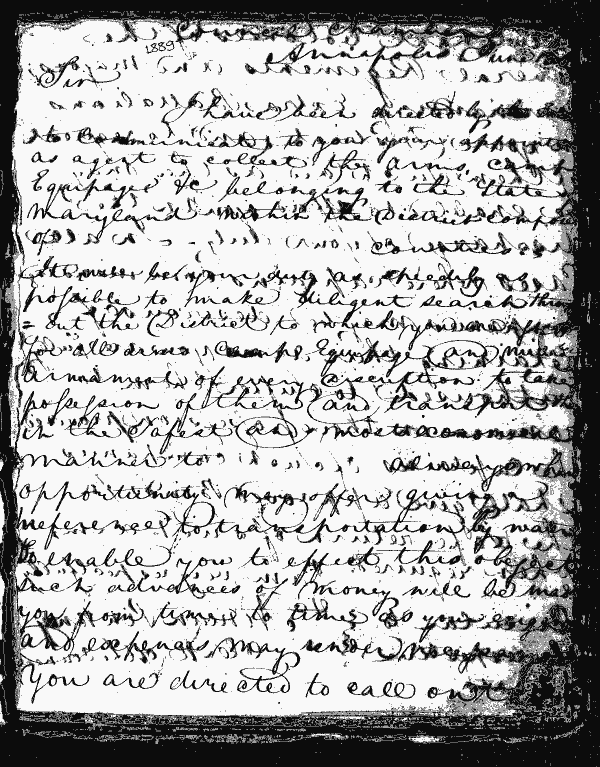 Council Chamber
1889
Annapolis June
Sir
I have been directed by the
to communicate to your your appointment
as agent to collect the arms, Camp
Equipage &c belonging to the State
Maryland within the District compos
of counties
It will be your duty as speedily as
possible to make diligent search thro
= out the District to which you are
for all arms, Camp, Equipage and
armaments of every description to take
possession of them and transport
in the safest and most economical
manner to always when
opportunity may offer giving a
reference to transportation by water
To enable you to effect this object
such advances of money will be made
you from time to time as your
and expences may render necessary
You are directed to call on